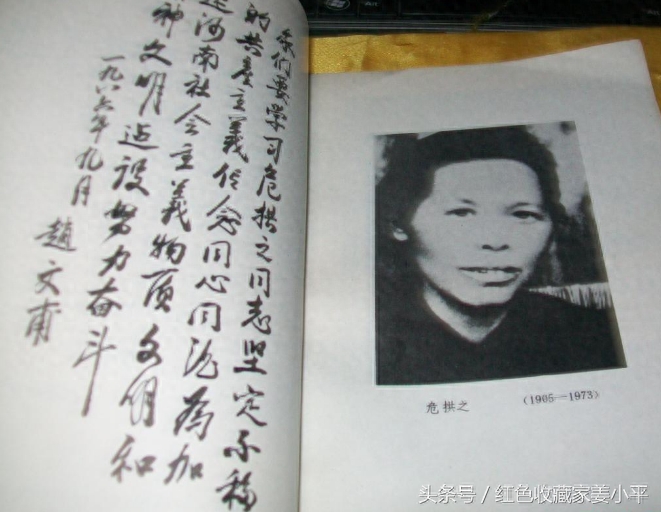 我们要學习危拱之同志坚定不移
的共產主義信念同心同德為加
速河南社会主義物质文明和
神文明建设努力奋斗
一九八六年九月
趙文甫
危拱之
(1905—1973)
头条号／红色收藏家姜小平